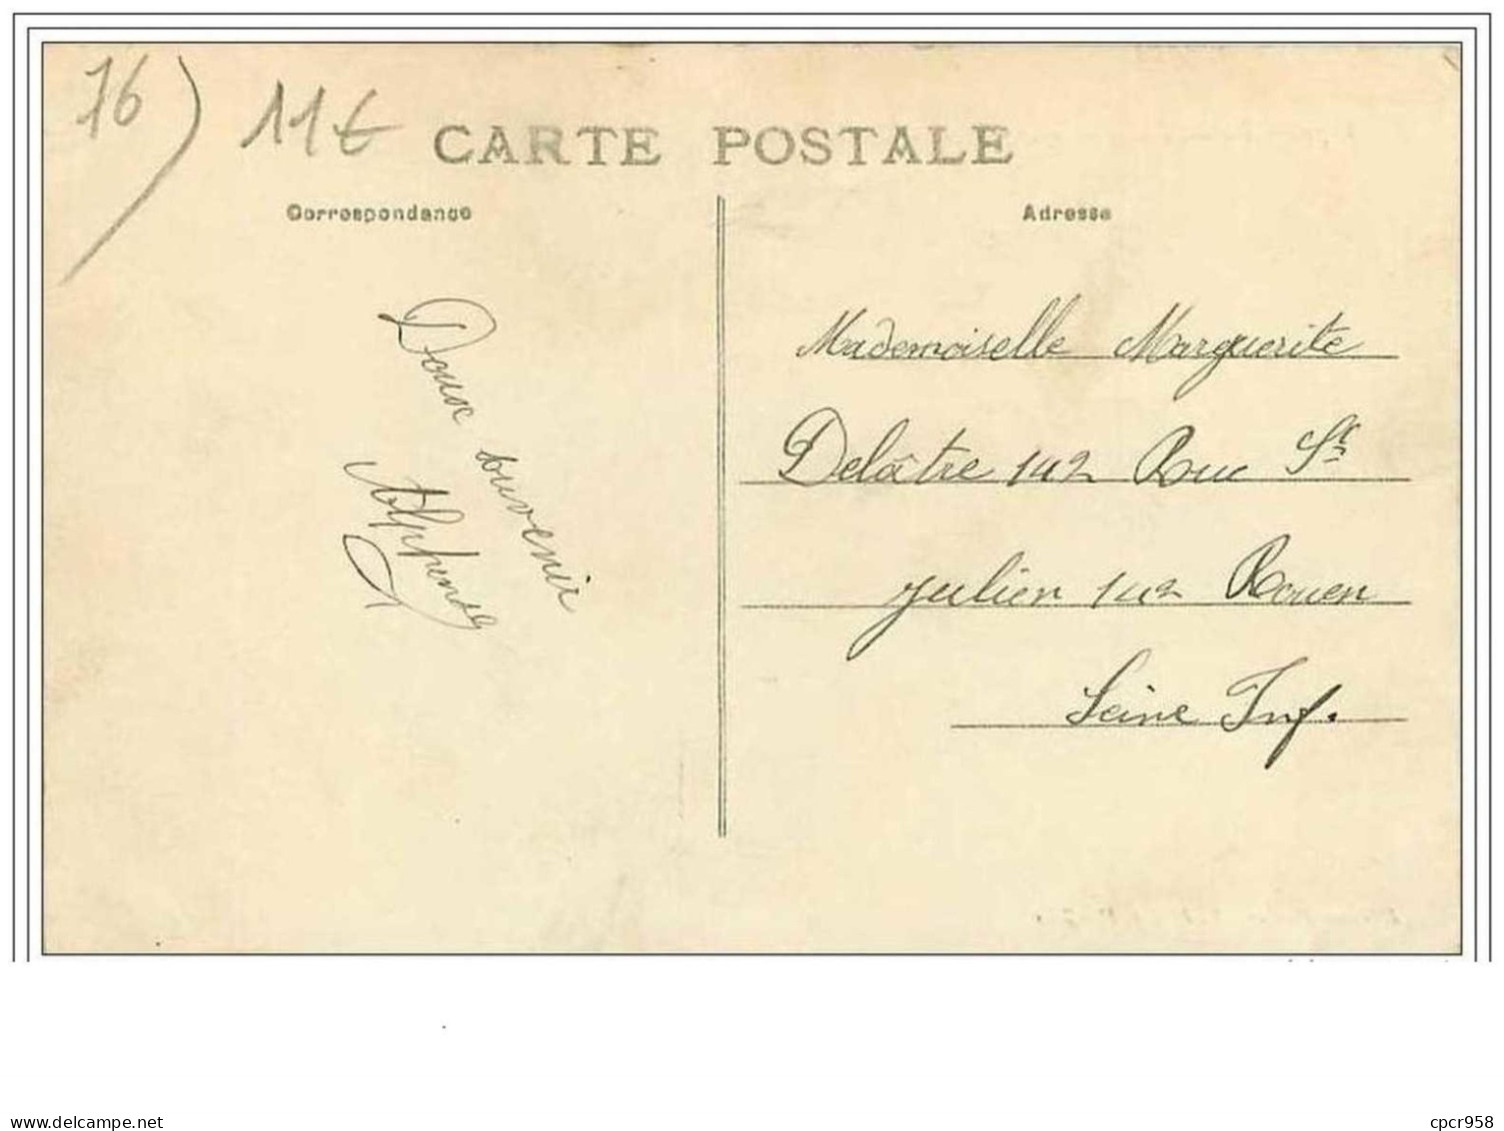 76) 11€
CARTE POSTALE
Correspondance
Adresse
Doux souvenir
Alphonse
Mademoiselle Marguerite
Delâtre 142 Rue St
Julien 142 Rouen
Seine Inf.
delcampe.net
cpcr958